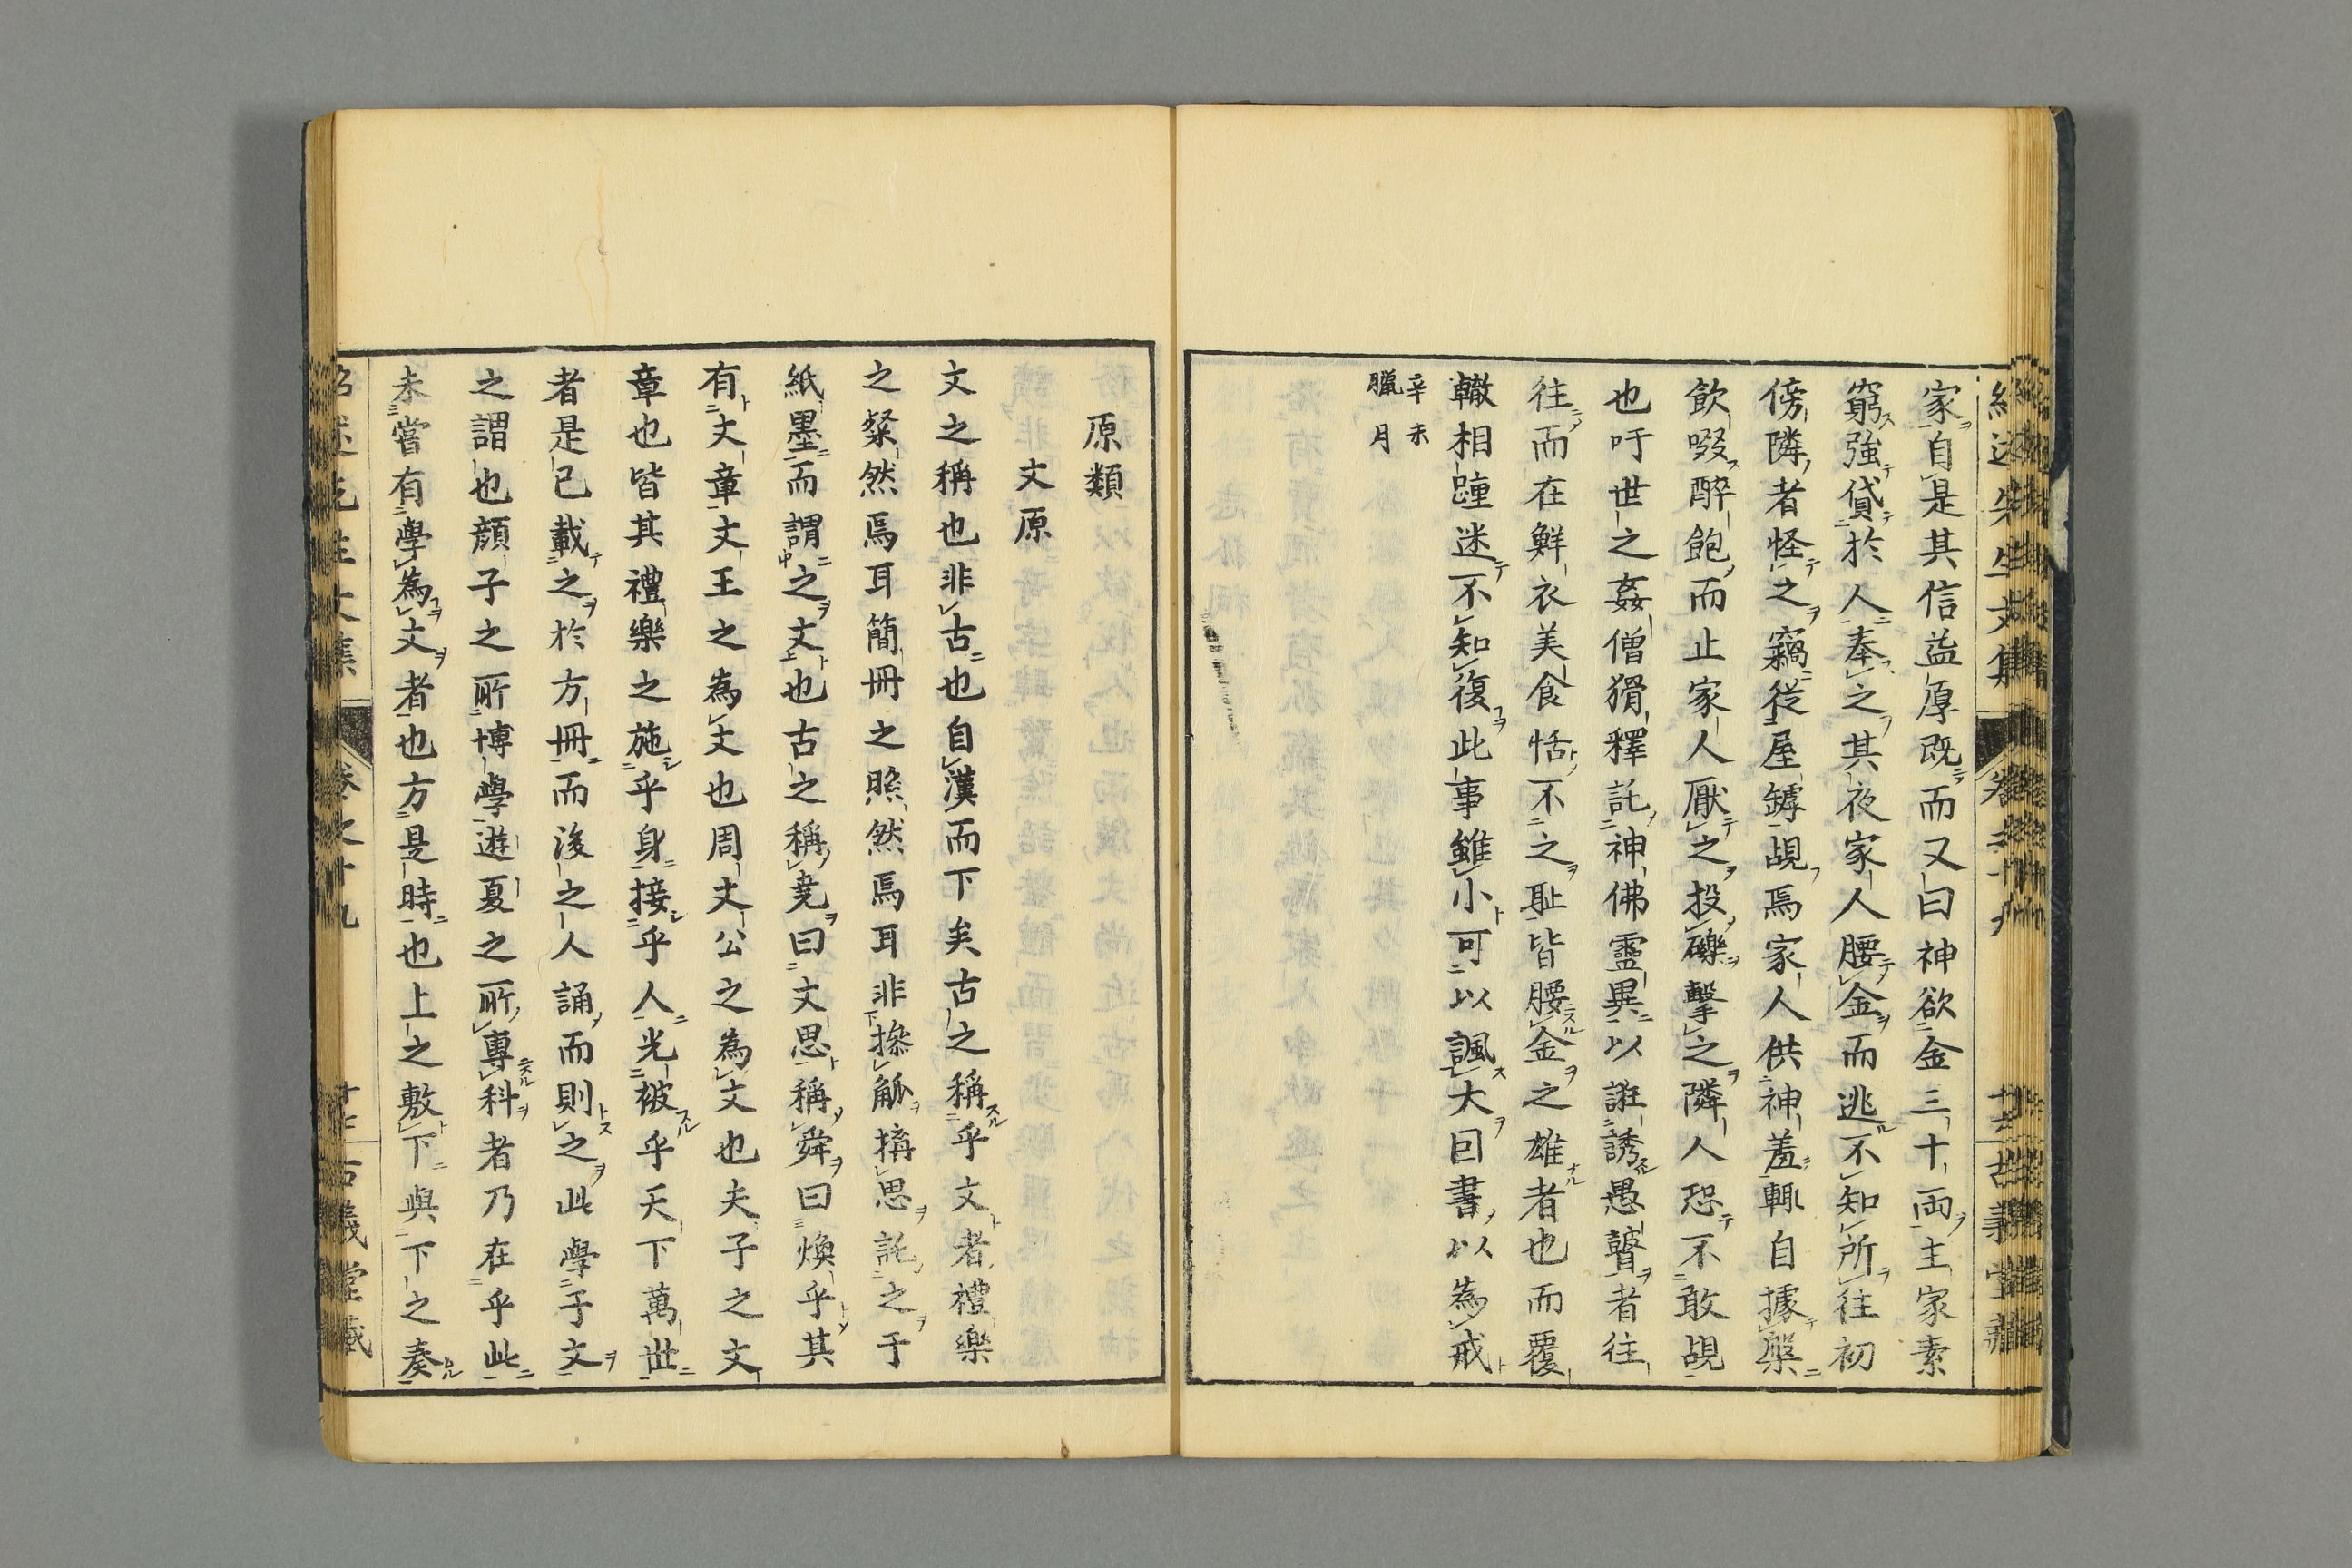 家自是其信益厚既而又曰神欲金三十兩主家素
窮強貸於人奉之其夜家人腰金而逃不知所往初
傍隣者怪之竊從屋罅覘焉家人供神羞輒自據槃
飲啜醉飽而止家人厭之投礫擊之隣人恐不敢覘
也吁世之姦僧猾釋託神佛靈異以誑誘愚瞽者往
往而在鮮衣美食恬不之耻皆腰金之雄者也而覆
轍相踵迷不知復此事雖小可以諷大因書以為戒
辛未
臘月
原類
文原
文之稱也非古也自漢而下矣古之稱乎文者禮樂
之粲然焉耳簡冊之照然焉耳非操觚搆思託之于
紙墨而謂之文也古之稱堯曰文思稱舜曰煥乎其
有文章文王之為文也周文公之為文也夫子之文
章也皆其禮樂之施乎身接乎人光被乎天下萬世
者是已載之於方冊而後之人誦而則之此學于文
之謂也顏子之所博學游夏之所專科者乃在乎此
未嘗有學為文者也方是時也上之敷下與下之奏
卷之十九
古義堂藏